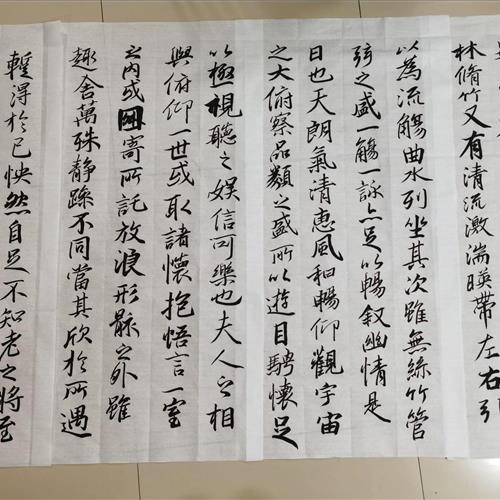 林脩竹又有清流激湍暎帶左右引
以為流觴曲水列坐其次雖無絲竹管
弦之盛一觴一詠亦足以暢叙幽情是
日也天朗氣清惠風和暢仰觀宇宙
之大俯察品類之盛所以遊目騁懷足
以極視聽之娱信可樂也夫人之相
與俯仰一世或取諸懷抱悟言一室
之内或因寄所託放浪形骸之外雖
趣舍萬殊静躁不同當其欣於所遇
暫得於己怏然自足不知老之將至